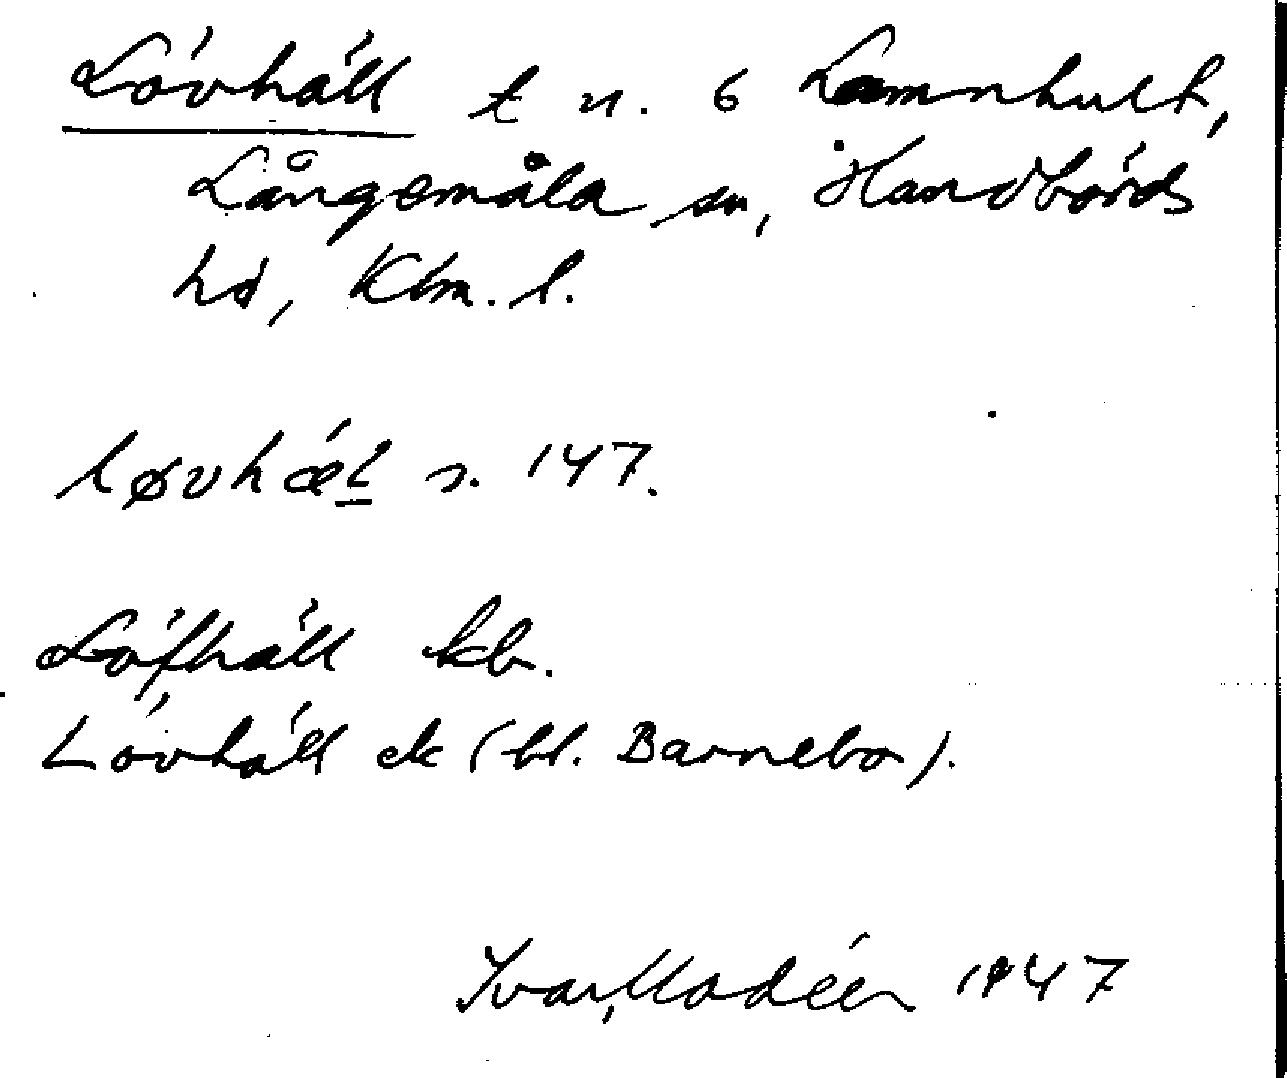 Lövhäll t n. 6 Lamnhult,
Långemåla sn, Handbörds
hd, Klm. l.
løvhæl s. 147.
Löfhäll kb.
Lövhäll ek (bl. Barnebo).
Ivar Modéer 1947